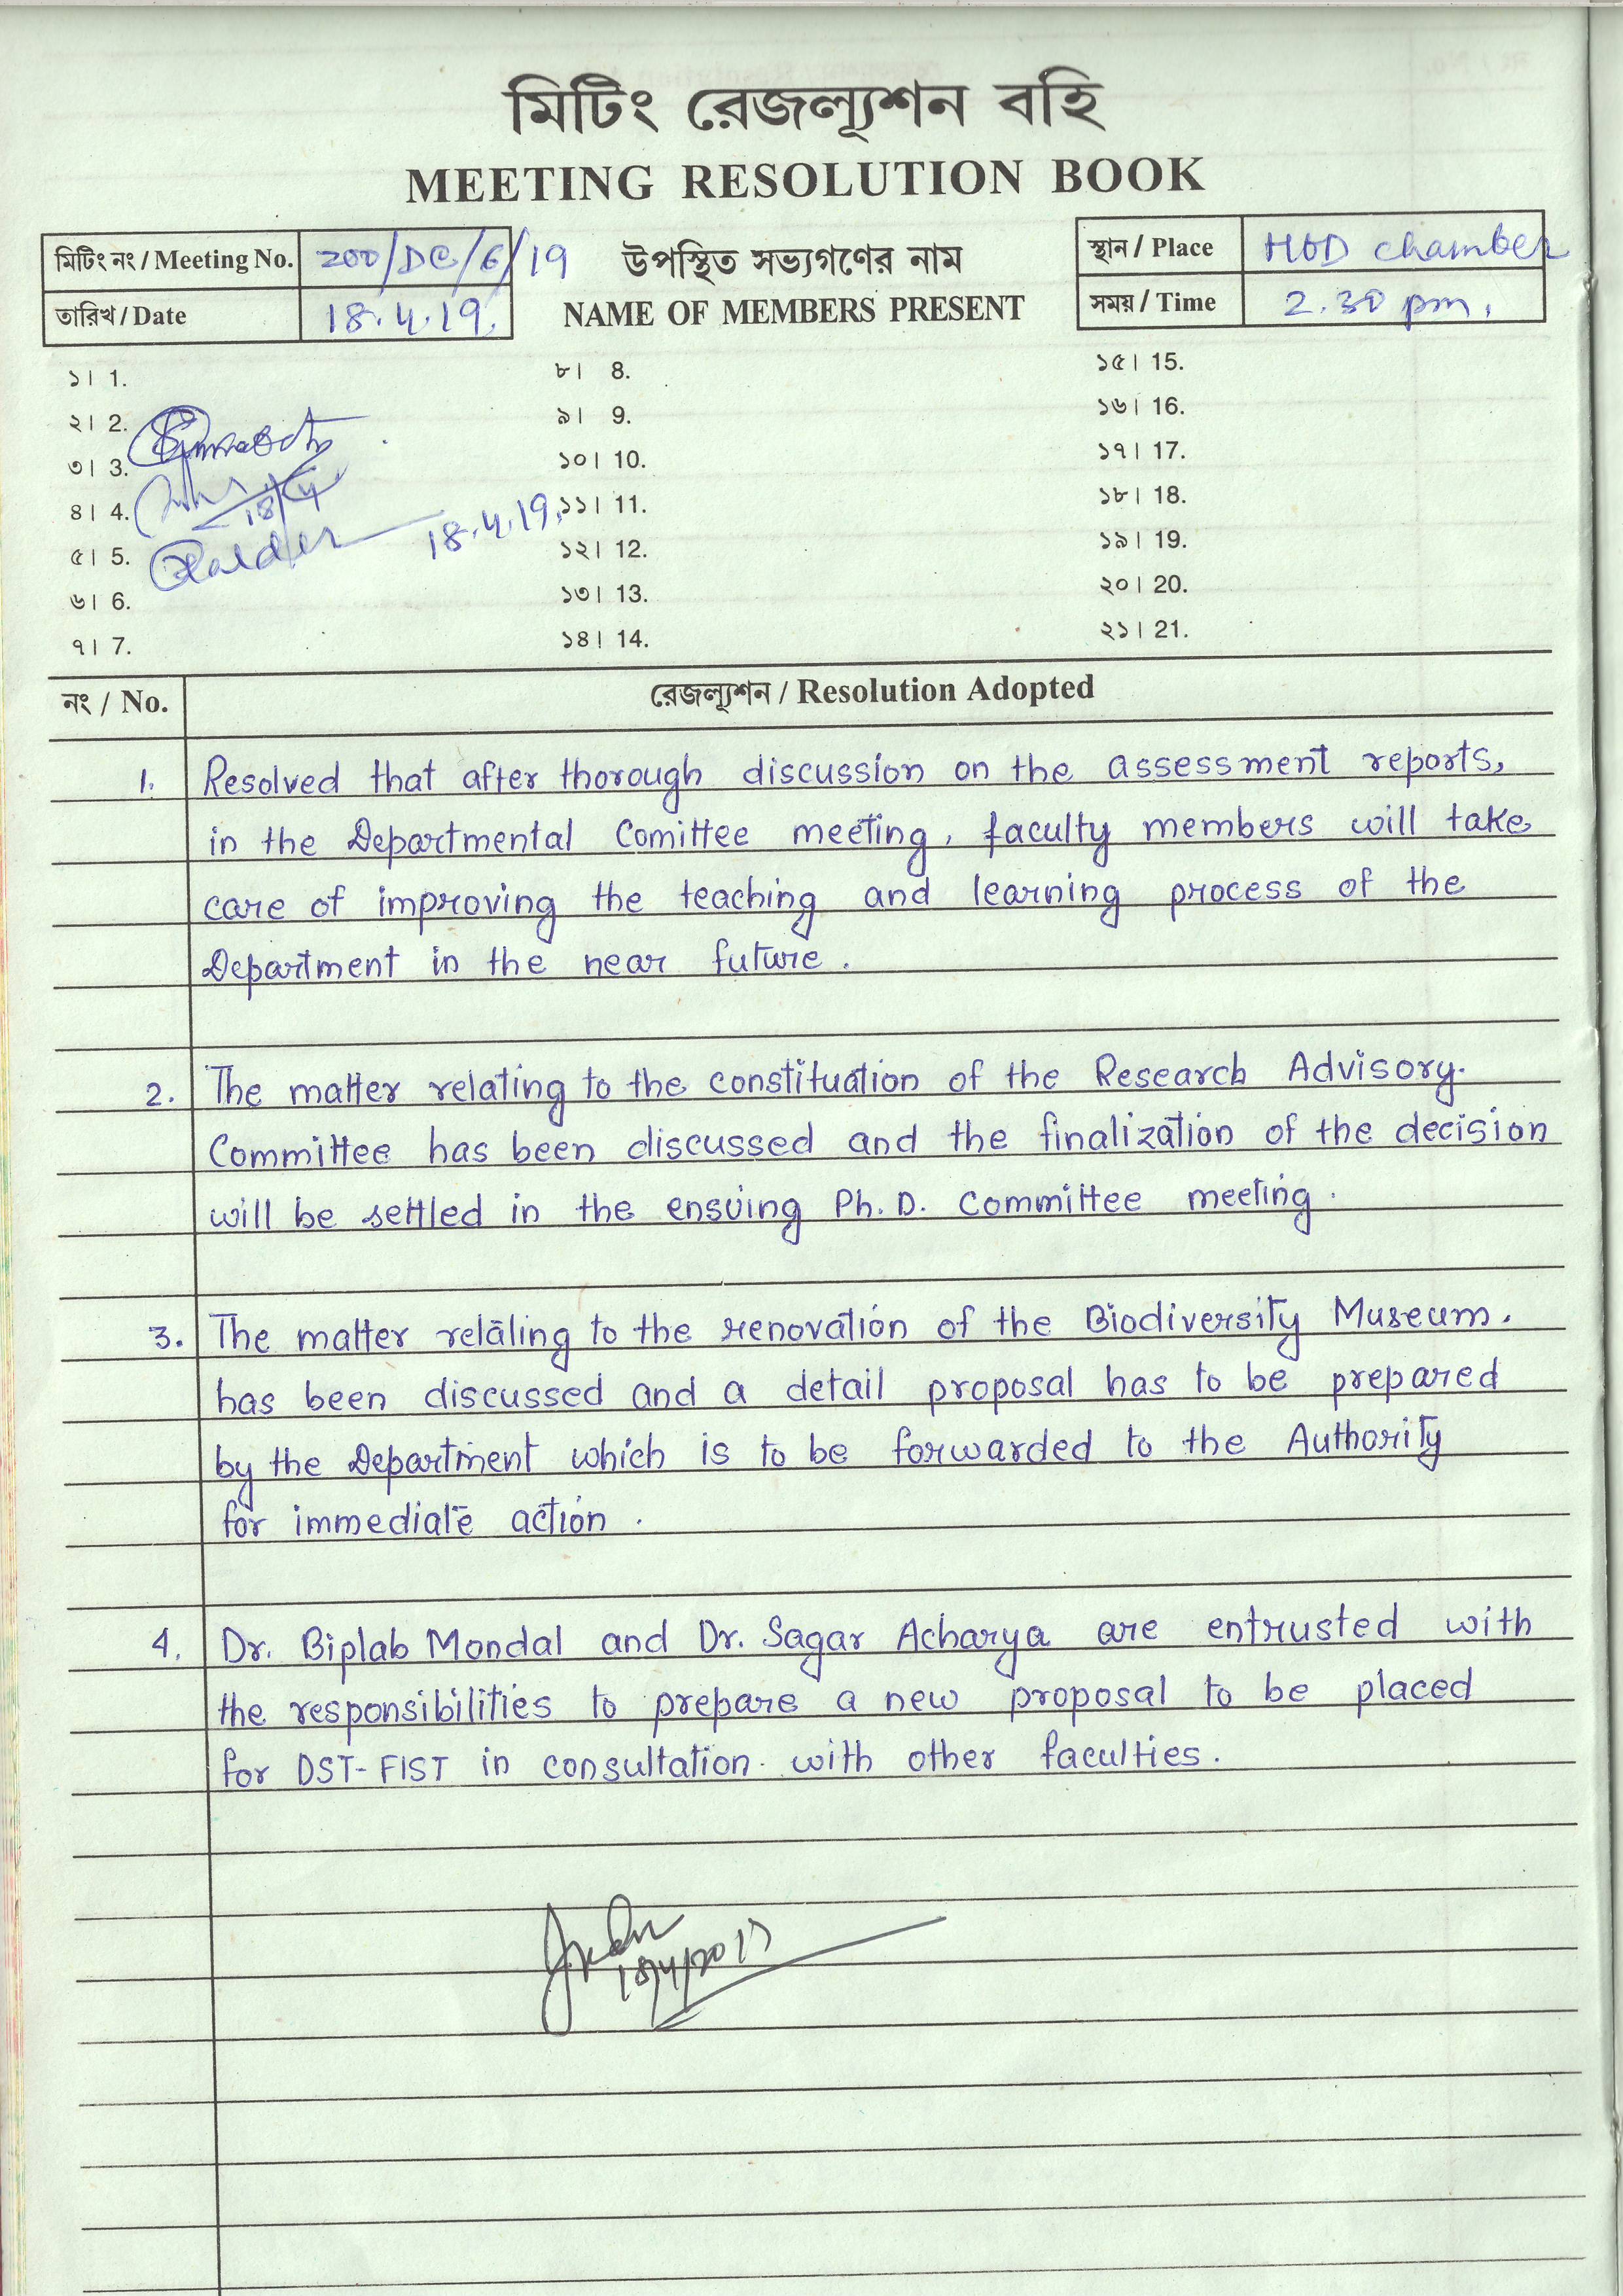 মিটিং রেজল্যূশন বহি
MEETING RESOLUTION BOOK
মিটিং নং / Meeting No. 200/DC/6/19
তারিখ / Date 18.4.19.
উপস্থিত সভ্যগণের নাম
NAME OF MEMBERS PRESENT
স্থান / Place HOD chamber
সময় / Time 2.30 pm.
১। 1.
২। 2.
৩। 3.
৪। 4. 18/4
৫। 5. 18.4.19.
৬। 6.
৭। 7.
৮। 8.
৯। 9.
১০। 10.
১১। 11.
১২। 12.
১৩। 13.
১৪। 14.
১৫। 15.
১৬। 16.
১৭। 17.
১৮। 18.
১৯। 19.
২০। 20.
২১। 21.
নং / No. রেজল্যূশন / Resolution Adopted
1. Resolved that after thorough discussion on the assessment reports,
in the Departmental Comittee meeting, faculty members will take
care of improving the teaching and learning process of the
Department in the near future.
2. The matter relating to the constituation of the Research Advisory.
Committee has been discussed and the finalization of the decision
will be settled in the ensuing Ph.D. Committee meeting.
3. The matter relating to the renovation of the Biodiversity Museum.
has been discussed and a detail proposal has to be prepared
by the Department which is to be forwarded to the Authority
for immediate action.
4. Dr. Biplab Mondal and Dr. Sagar Acharya are entrusted with
the responsibilities to prepare a new proposal to be placed
for DST-FIST in consultation with other faculties.